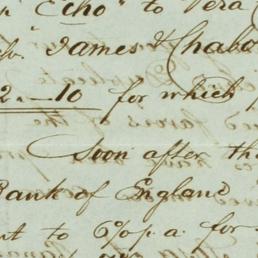 "Echo" to Vera
James & Chabo
2.—.10 for which
Soon after th
Bank of England
nt to 6% p.a. for